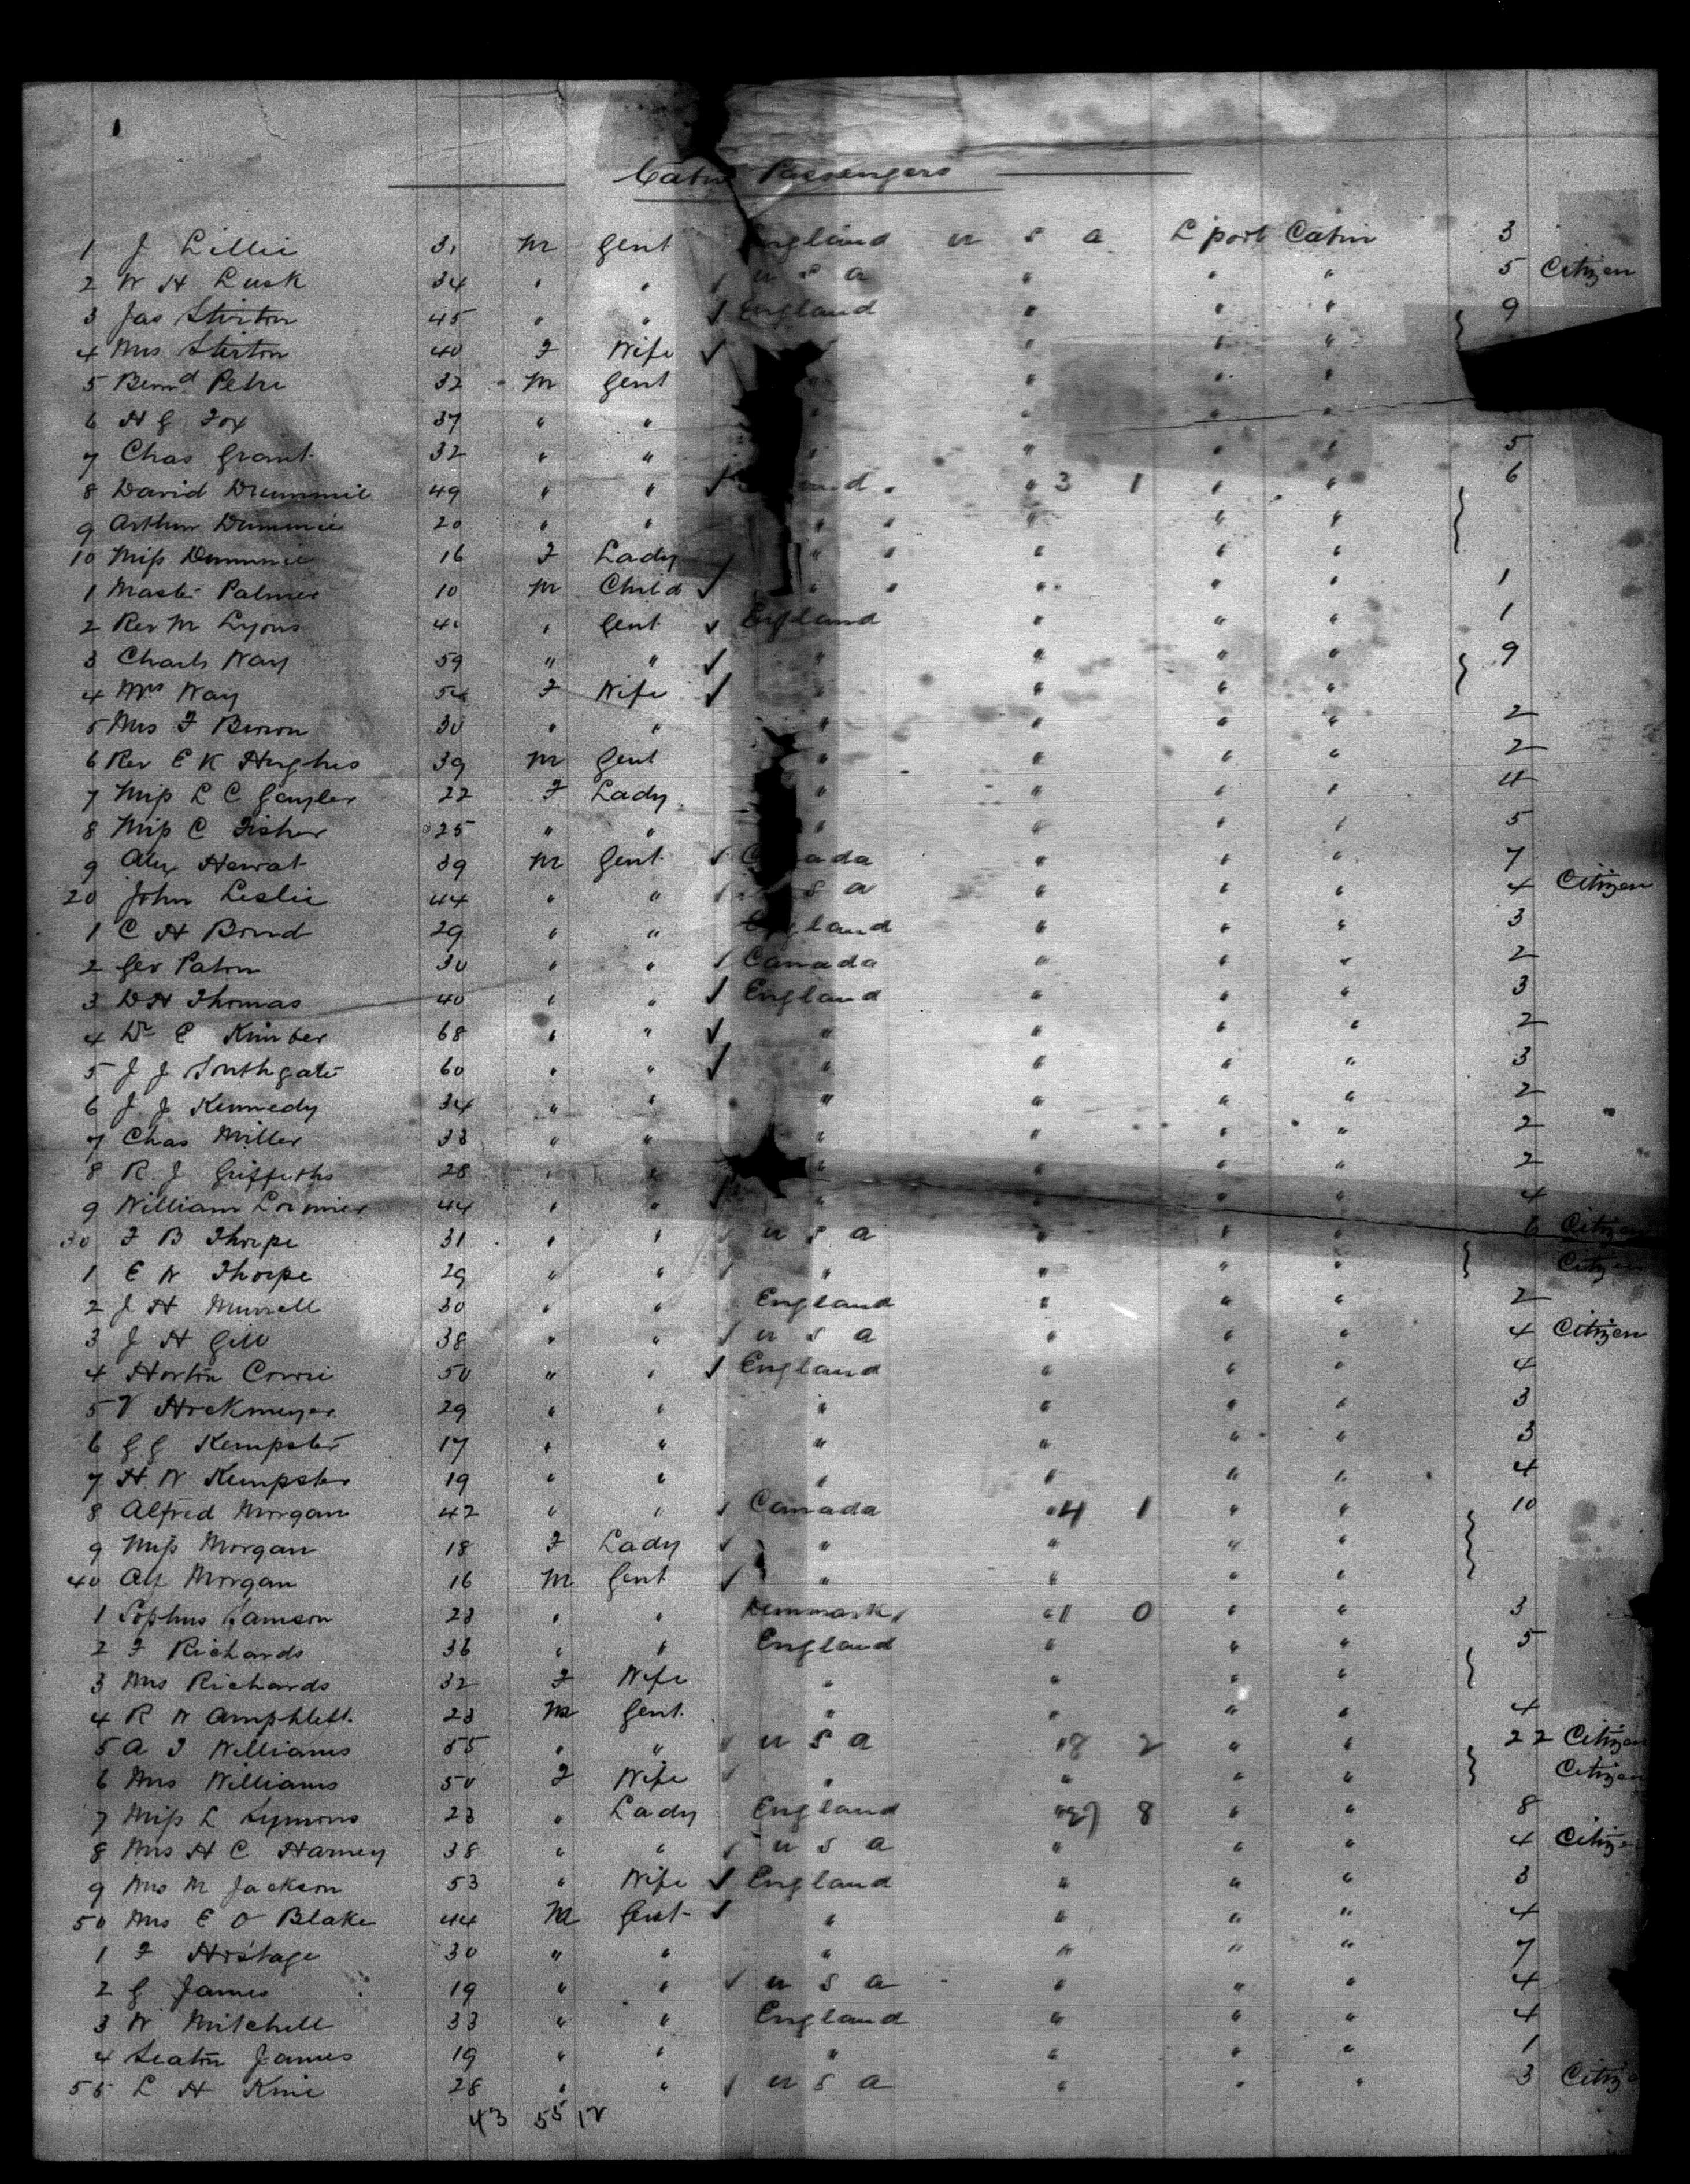 Cabin Passengers
1 J Lillie 31 M Gent England U S A L'pool Cabin 3
2 W H Lusk 34 " " U S A " " " 5 Citizen
3 Jas Stirton 45 " " England " " " 9
4 Mrs Stirton 40 F Wife " " "
5 Bernd Petrie 32 M Gent " " " "
6 H G Fox 37 " " " " " "
7 Chas Grant 32 " " " " " " 5
8 David 49 " " " 3 1 " " 6
9 Arthur 20 " " " " " "
10 Miss 16 F Lady " " " "
1 Master Palmer 10 M Child " " " " 1
2 Rev M Lyons " Gent England " " " 1
3 Charls Way 59 " " " " " " 9
4 Mrs Way 54 F Wife " " " "
5 Mrs F Brown 30 " " " " " " 2
6 Rev E K Hughes 39 M Gent " " " " 2
7 Miss L C Gayler 22 F Lady " " " " 4
8 Miss C Fisher 25 " " " " " " 5
9 Alex Hewat 39 M Gent Canada " " " 7
20 John Leslie 44 " " U S A " " " 4 Citizen
1 C H Bond 29 " " England " " " 3
2 Geo Paton 30 " " Canada " " " 2
3 D H Thomas 40 " " England " " " 3
4 Dr E Kimber 68 " " " " " " 2
5 J J Southgate 60 " " " " " " 3
6 J J Kennedy 34 " " " " " " 2
7 Chas Miller 33 " " " " " " 2
8 R J Griffiths 28 " " " " " " 2
9 William Lorimer 44 " " " " " " 4
30 F B Thorpe 31 " " U S A " " " 6 Citizen
1 E W Thorpe 29 " " " " " " Citizen
2 J H Murrell 30 " " England " " " 2
3 J H Gill 38 " " U S A " " " 4 Citizen
4 Horton Cowie 50 " " England " " " 4
5 V Hockmeyer 29 " " " " " " 3
6 G G Kempster 17 " " " " " " 3
7 H W Kempster 19 " " " " " " 4
8 Alfred Morgan 42 " " Canada " 4 1 " " 10
9 Miss Morgan 18 F Lady " " " "
40 Alf Morgan 16 M Gent " " " "
1 Sophus Samson 23 " " Denmark " 1 0 " " 3
2 F Richards 36 " " England " " " 5
3 Mrs Richards 32 F Wife " " " "
4 R W Amphlett 23 M Gent " " " " 4
5 A J Williams 55 " " U S A " 8 2 " " 22 Citizen
6 Mrs Williams 50 F Wife " " " " Citizen
7 Miss L Symons 23 " Lady England 8 " " 8
8 Mrs H C Harney 38 " " U S A " " " 4 Citizen
9 Mrs M Jackson 53 " Wife England " " " 3
50 Mrs E O Blake 44 M Gent " " " " 4
1 F Hostage 30 " " " " " " 7
2 G James 19 " " U S A " " " 4
3 W Mitchell 33 " " England " " " 4
4 Seaton James 19 " " " " " " 1
55 L H 28 " " U S A " " " 3 Citizen
43 55 12